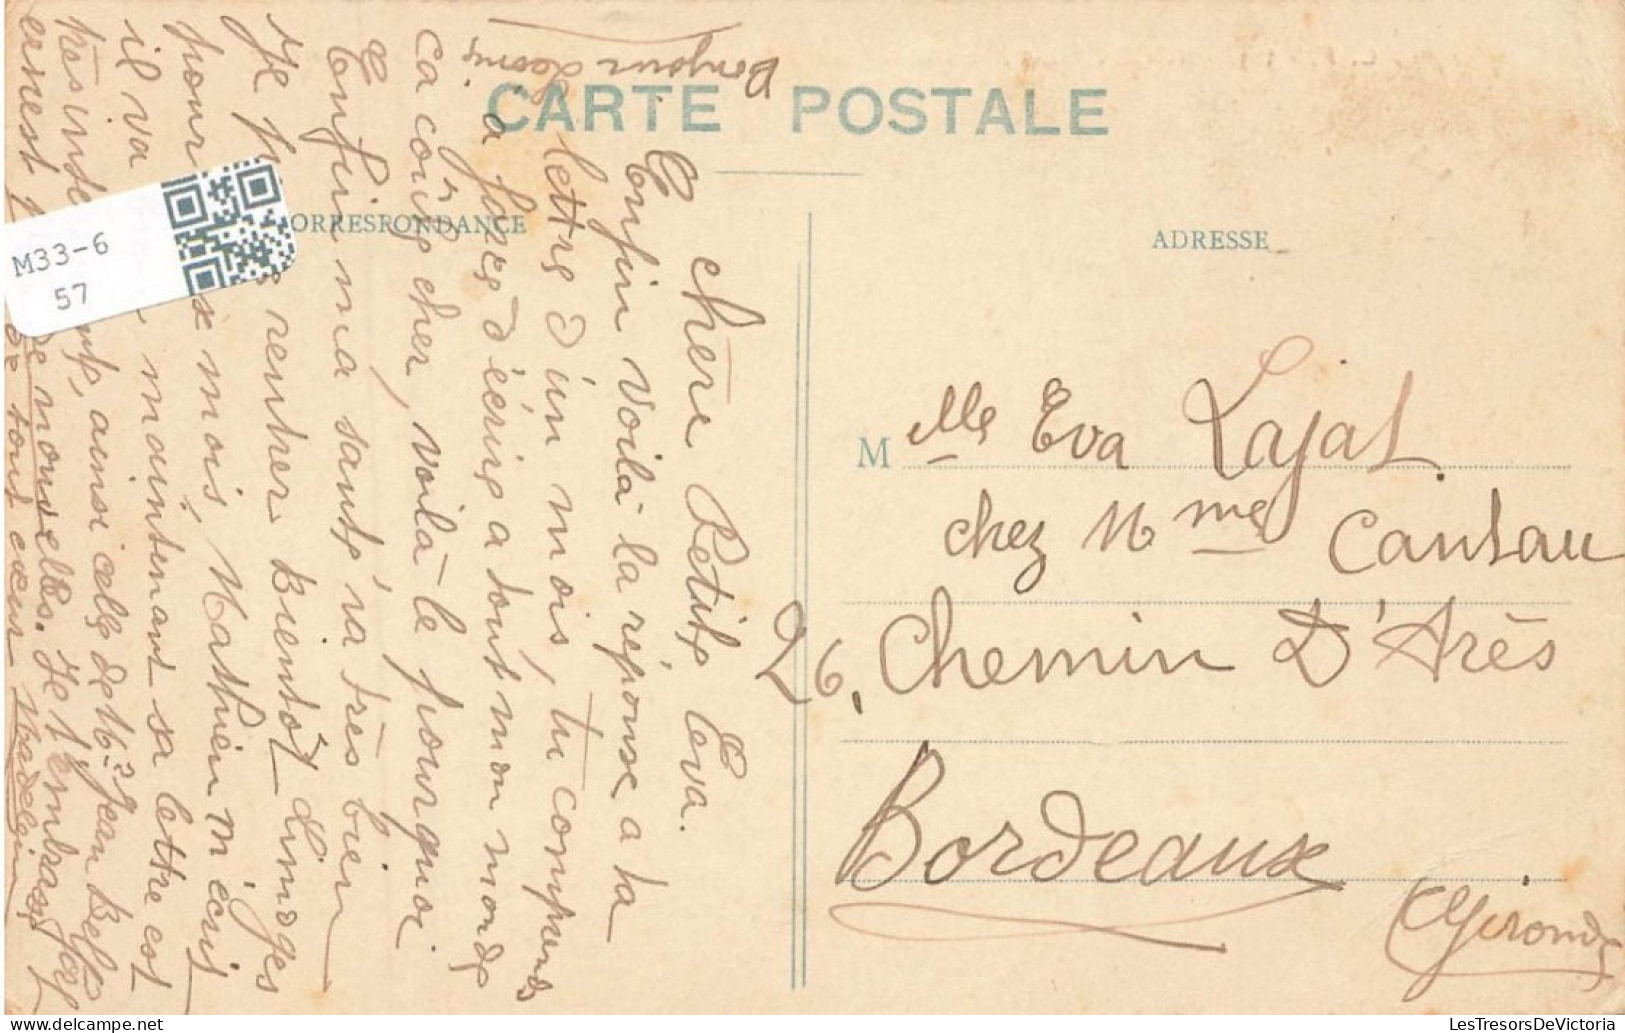 CARTE POSTALE
CORRESPONDANCE
ADRESSE
M33-6
57
Chère Petite Eva.
Enfin voilà la réponse a ta
lettre d'un mois, tu comprends
a force d'écrire a tout mon monde
ca coûte cher, voilà le pourquoi
Enfin ma santé va très bien
Je rentrer bientôt Limoges
pour mois, Mathieu m'écrit
il va maintenant sa lettre est
très ainsi celle de Jean
ernest de nouvelles. Je t'Embrasse
de tout cœur
bonjour
M elle Eva Lajat.
chez Mme Cantau
26, Chemin D'Arès
Bordeaux
(Gironde)
LesTresorsDeVictoria